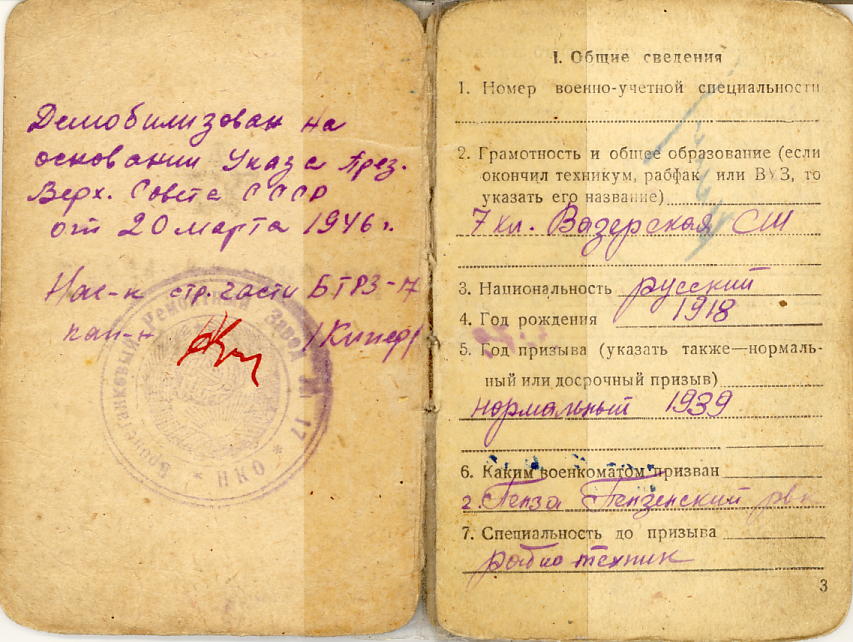 Демобилизован на
основании Указа През.
Верх. Совета СССР
от 20 марта 1946 г.
Нач-к стр. части БТРЗ-17
кап-н /Кипер/
Бронетанковый Ремонтный Завод № 17
* НКО *
I. Общие сведения
1. Номер военно-учетной специальности
2. Грамотность и общее образование (если
окончил техникум, рабфак или ВУЗ, то
указать его название)
7 кл. Вазерская СШ
3. Национальность русский
4. Год рождения 1918
5. Год призыва (указать также—нормаль-
ный или досрочный призыв)
нормальный 1939
6. Каким военкоматом призван
г. Пенза Пензенский рвк
7. Специальность до призыва
радио техник
3